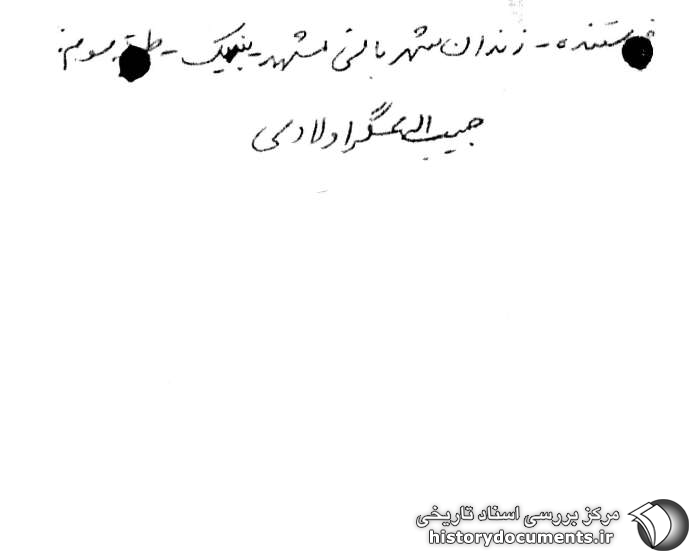 فرستنده - زندان شهربانی مشهد - بند یک - طبقه سوم:
حبیب الله عسگراولادی
مرکز بررسی اسناد تاریخی
historydocuments.ir